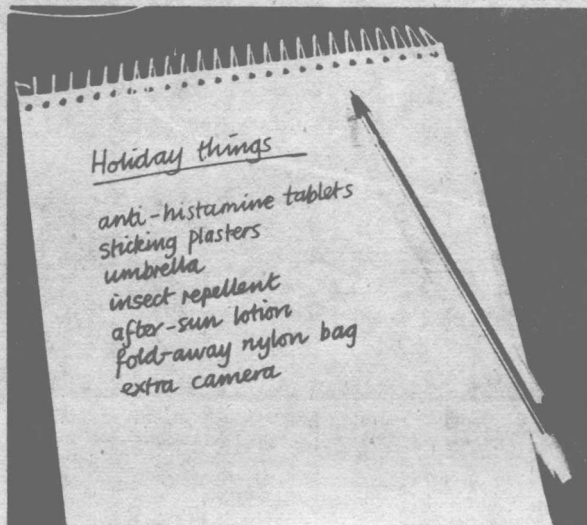 Holiday things
anti-histamine tablets
sticking plasters
umbrella
insect repellent
after-sun lotion
fold-away nylon bag
extra camera